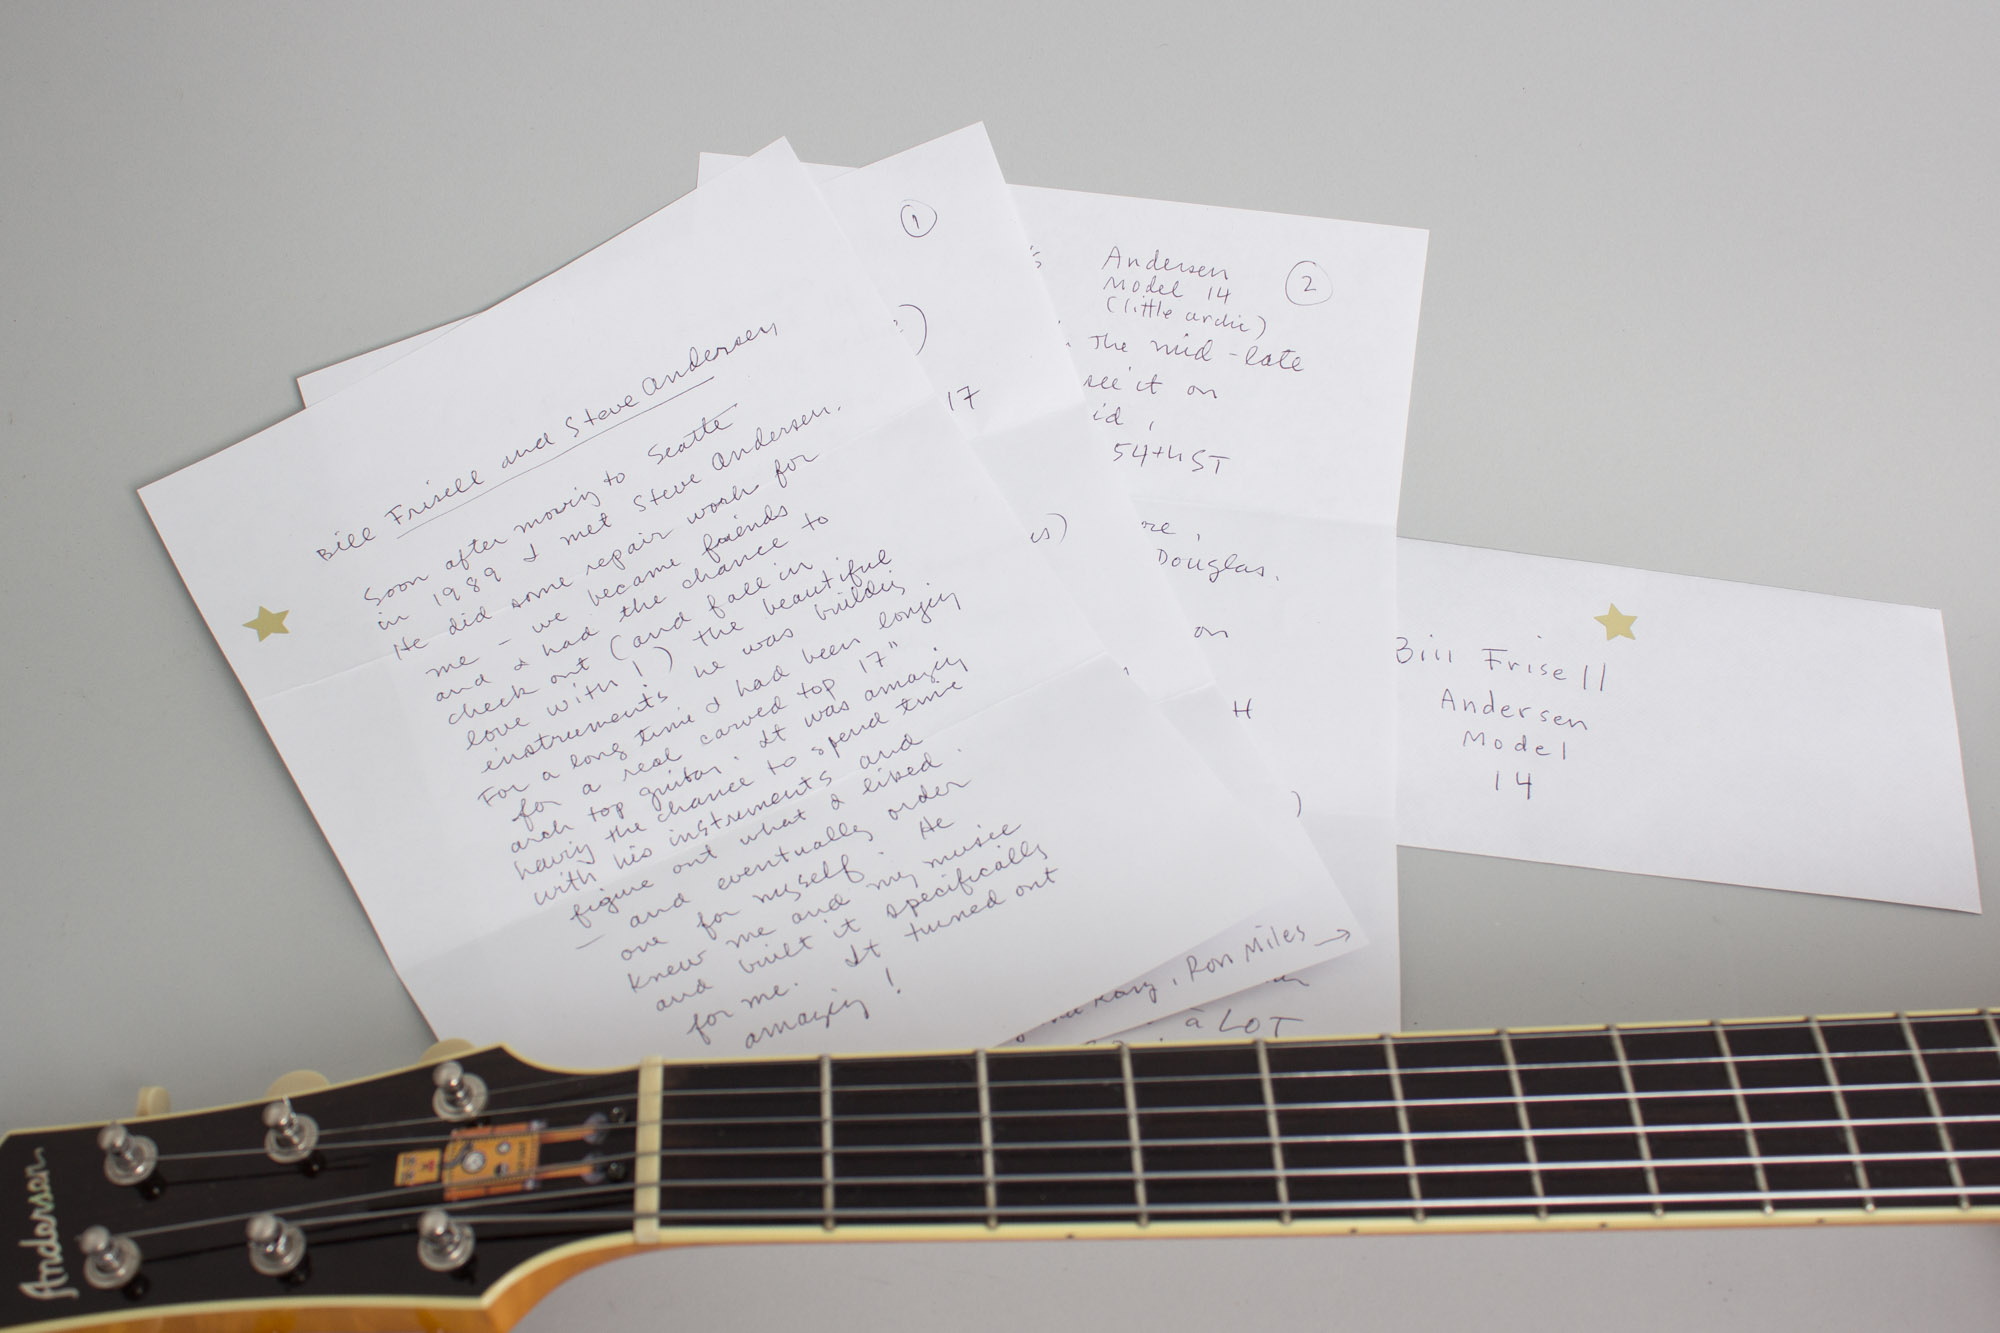 Bill Frisell and Steve Andersen
Soon after moving to Seattle
in 1989 I met Steve Andersen.
He did some repair work for
me - we became friends
and I had the chance to
check out (and fall in
love with!) the beautiful
instruments he was building
For a long time I had been longing
for a real carved top 17"
arch top guitar. It was amazing
having the chance to spend time
with his instruments and
figure out what I liked.
- and eventually order
one for myself. He
knew me and my music
and built it specifically
for me. It turned out
amazing!
1
17
Ron Miles →
Andersen
Model 14
(little archie)
2
The mid-late
see it on
54th ST
Douglas.
on
H
à LOT
Bill Frisell
Andersen
Model
14
Andersen